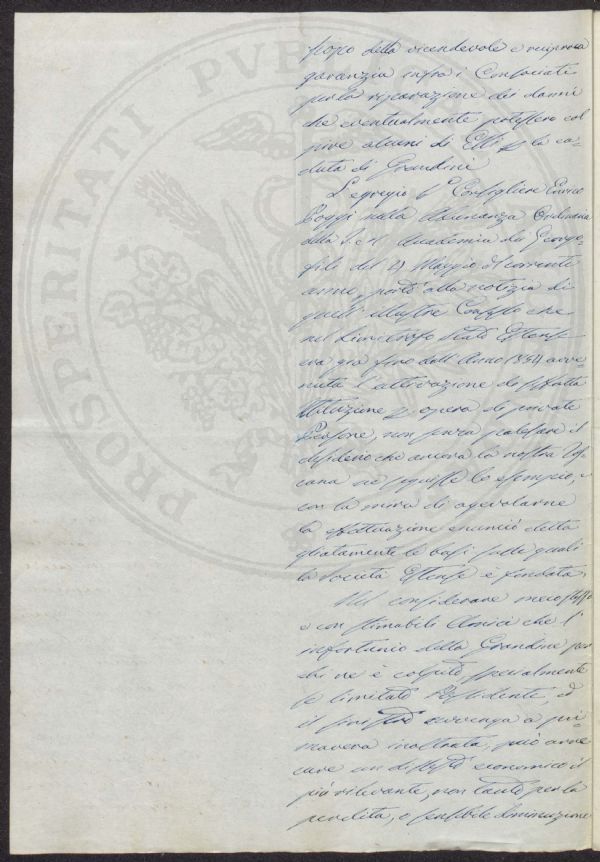 scopo della vicendevole e reciproca
garanzia infra i Consociati
per la riparazione dei danni
che eventualmente potessero col
pire alcuni di Essi p la ca-
duta di Grandini
L'egregio Consigliere Enrico
Poggi nella Adunanza Ordinaria
della I. e R. Accademia dei Georgo-
fili del 4 Maggio del corrente
anno, portò alla notizia di
quell'illustre Consesso che
nel limitrofo Stato Estense
era già fino dall'Anno 1854 avve-
nuta l'attivazione di siffatta
Istituzione p opera di private
Persone, non senza palesare il
desiderio che ancora la nostra Tos
cana ne seguisse lo esempio, e
con la mira di agevolarne
la effettuazione enunciò detta
gliatamente le basi sulle quali
la Società Estense è fondata.
Nel considerare meco stesso
e con stimabili Amici che l'
infortunio della Grandine per
chi ne è colpito specialmente
se limitato Possidente, ed
il sinistro avvenga a pri-
mavera inoltrata, può arre
care un dissesto economico il
più rilevante, non tanto per la
perdita, o sensibile diminuzione
PROSPERITATI PVB